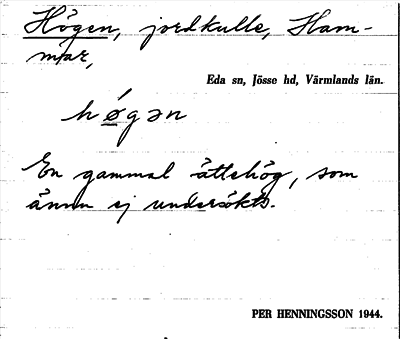 Högen, jordkulle, Ham-
mar,
Eda sn, Jösse hd, Värmlands län.
hǿgən
En gammal ättehög, som
ännu ej undersökts.
PER HENNINGSSON 1944.